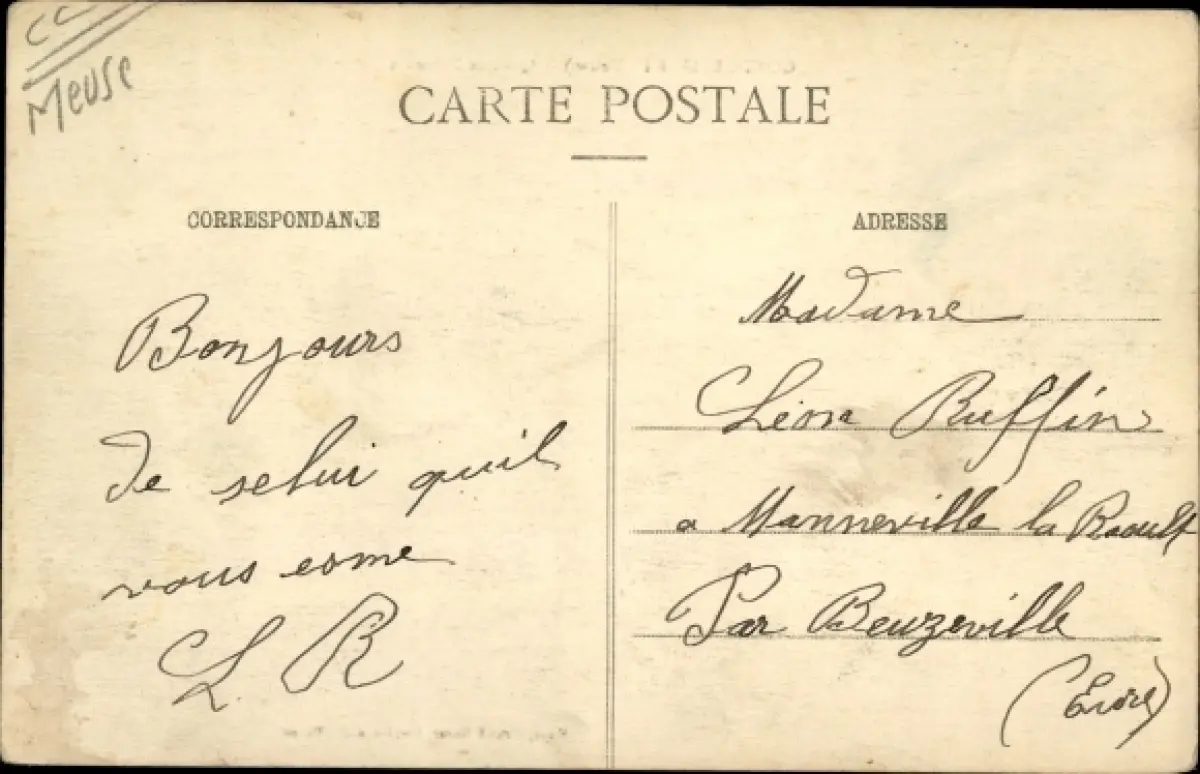 CC
Meuse
CARTE POSTALE
CORRESPONDANCE
Bonjours
De selui quil
vous eome
L R
ADRESSE
Madame
Léon Ruffin
a Manneville la Raoult
Par Beuzeville
(Eure)